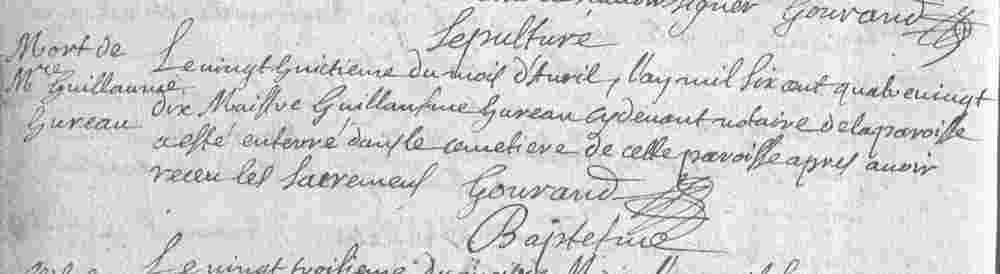 signer Gourand
Sepulture
Mort de
Mre Guillaume
Gureau
Le vingt huictieme du mois d'Avril, l'an mil six cent quatre vingt
dix Maistre Guillaume Gureau cydevant notaire de la paroisse
a esté enterré dans le cemetiere de cette paroisse apres avoir
receu les Sacremens Gourand
Baptesme
Le vingt troisieme du